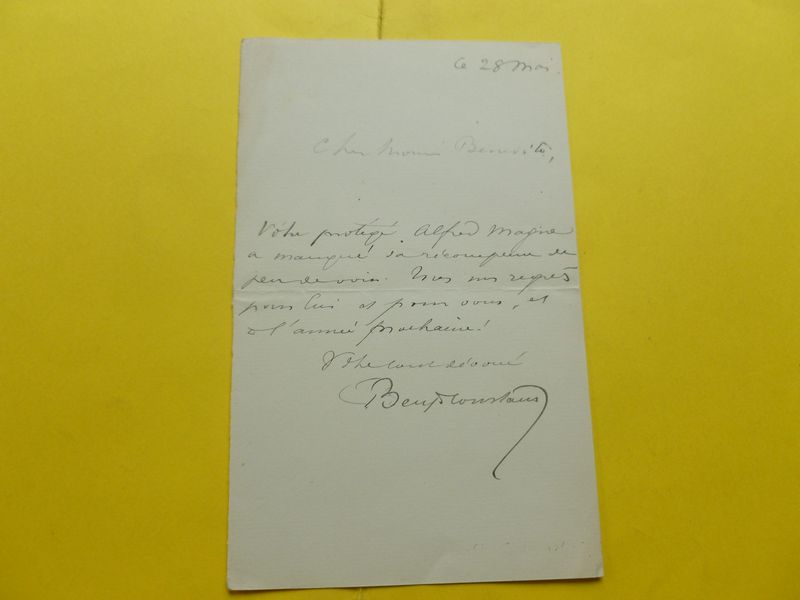 Ce 28 Mai
Cher Monsieur Benedite,
Votre protégé Alfred Magne
a manqué sa récompense de
peu de voix. Tous mes regrets
pour lui et pour vous, et
à l'année prochaine!
Votre tout dévoué
Benj Constant